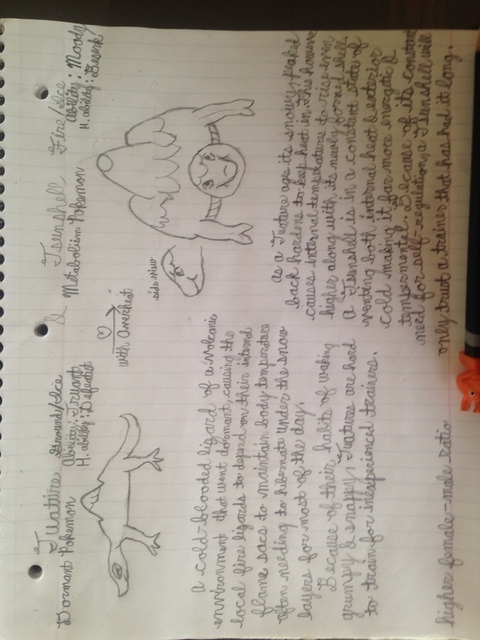 Tuature Ground/Ice
Dormant Pokemon Ability: Truant
H. ability: Defeatist
a cold-blooded lizard of a volcanic
environment that went dormant, causing the
local fire lizards to depend on their internal
flame sacs to maintain body temperature
often needing to hibernate under the snow
layers for most of the day.
Because of their habits of waking
grumpy & snappy, Tuature are hard
to train for inexperienced trainers.
higher female-male ratio
with Overheat
& Tsunshell Fire/Ice
Metabolism Pokemon Ability: Moody
H. ability: Berserk
side view
as a Tuature age its snowy peaked
back hardens to keep heat in. This however
causes internal temperatures to rise even
higher along with its newly formed shell.
A Tsunshell is in a constant state of
venting both internal heat & exterior
cold making it far more energetic &
tempermental. Because of its constant
need for self-regulation, a Tsunshell will
only trust a trainer that has had it long.